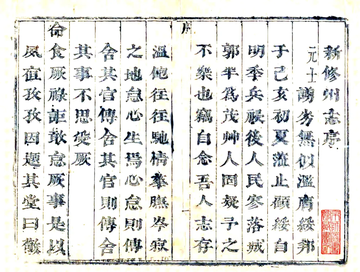 新修州志序
元士謭劣無似濫膺綏邦
于己亥初夏涖止顧綏自
明季兵燹後人民寥落城
郭半為茂艸人固疑予之
不樂也竊自念吾人志存
溫飽往往馳情華膴岑寂
之地怠心生焉心怠則傳
舍其官傳舍其官則傳舍
其事不思受厥
命食厥祿詎敢怠厥事是以
夙夜孜孜因題其堂曰